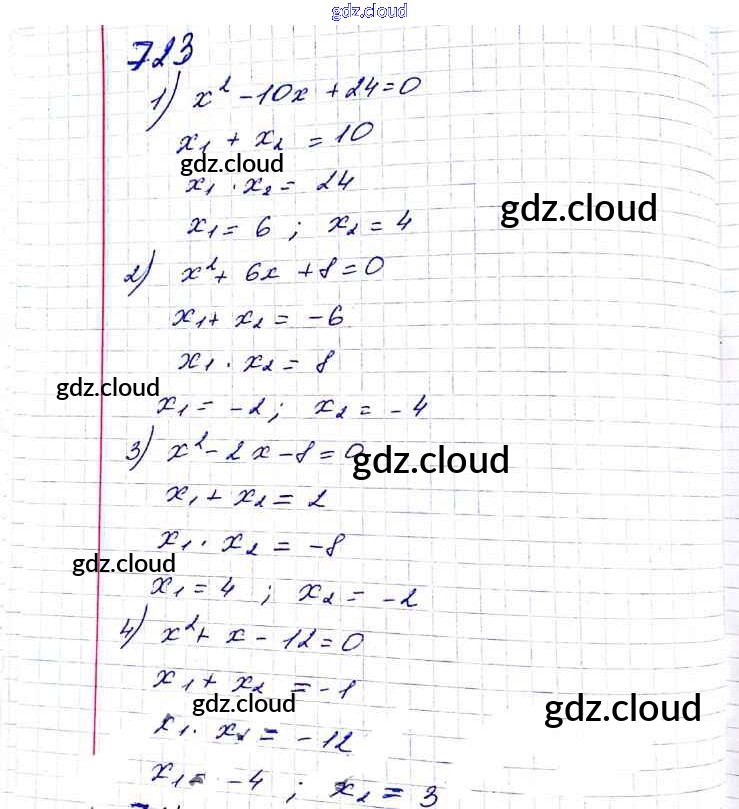 gdz.cloud
723
1) x² - 10x + 24 = 0
x₁ + x₂ = 10
gdz.cloud
x₁ · x₂ = 24
gdz.cloud
x₁ = 6 ; x₂ = 4
2) x² + 6x + 8 = 0
x₁ + x₂ = -6
x₁ · x₂ = 8
gdz.cloud
x₁ = -2 ; x₂ = -4
3) x² - 2x - 8 = 0
gdz.cloud
x₁ + x₂ = 2
x₁ · x₂ = -8
gdz.cloud
x₁ = 4 ; x₂ = -2
4) x² + x - 12 = 0
x₁ + x₂ = -1
gdz.cloud
gdz.cloud
x₁ · x₂ = -12
x₁ = -4 ; x₂ = 3